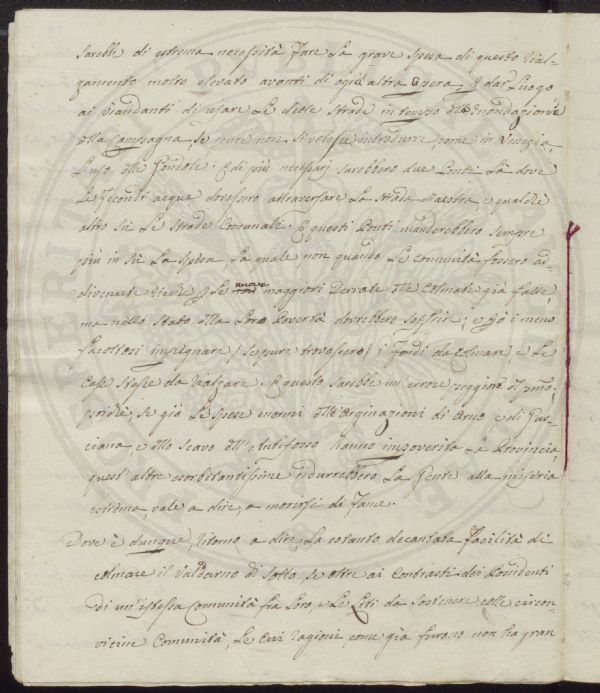 sarebbe di estrema necessità fare la grave spesa di questo rial-
zamento molto elevato avanti di ogni altra opera, e dar luogo
ai viandanti di usare le dette strade in tempo d'inondazione
alla Campagna, se pure non si volesse introdurre, come in Venezia,
l'uso delle Gondole. E di più necessarj sarebbero due Ponti là dove
le feconde acque dovessero attraversare la strada Maestra, e qualche
altro su le strade Comunali. E questi Ponti manderebbero sempre
più in su la spesa, la quale non quando le comunità fossero ad-
divenute ricche p le nuove maggiori Derrate delle Colmate già fatte,
ma nello stato della loro povertà dovrebbero soffrire; e p ciò i meno
facoltosi impegnare (se pure trovassero) i fondi da Colmare, e le
Case stesse da rialzare. E questo sarebbe un'errore peggiore
poichè, se già le spese enormi dell'Arginazioni di Arno e di Gus-
ciana, e dello scavo dell'Antifosso hanno impoverita la Provincia,
quest'altre esorbitantissime ridurrebbero la Gente alla miseria
estrema, vale a dire, a morirsi di fame.
Dove è dunque, ritorno a dire, la cotanto decantata facilità di
colmare il Valdarno di Sotto, se oltre ai contrasti dei Possidenti
di un'istessa Comunità fra loro, e le liti da sostenere colle circon-
vicine Comunità, le cui ragioni, come già furono non ha gran